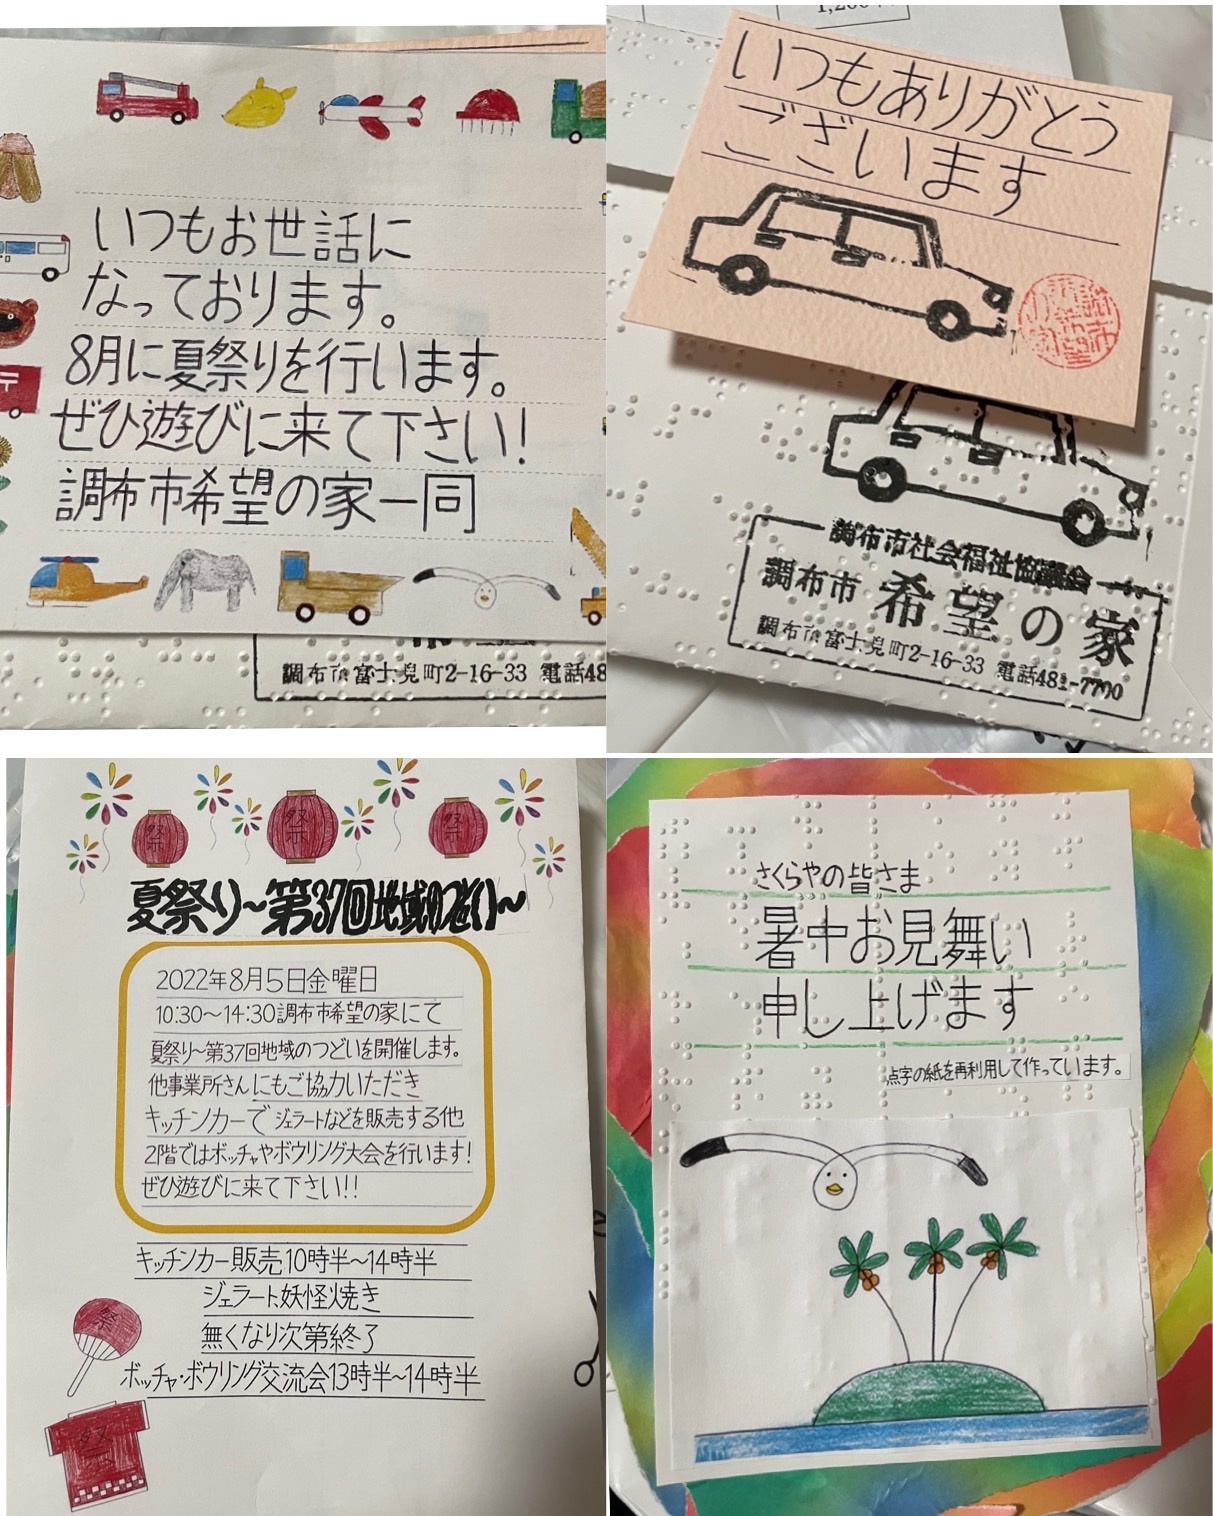 いつもお世話に
なっております。
8月に夏祭りを行います。
ぜひ遊びに来て下さい!
調布市希望の家一同
調布市富士見町2-16-33 電話48
いつもありがとう
ございます
調布市社会福祉協議会
調布市 希望の家
調布市富士見町2-16-33 電話481-7700
祭 祭 祭
夏祭り～第37回地域のつどい～
2022年8月5日金曜日
10:30～14:30調布市希望の家にて
夏祭り～第37回地域のつどいを開催します。
他事業所さんにもご協力いただき
キッチンカーで ジェラートなどを販売する他
2階ではボッチャやボウリング大会を行います!
ぜひ遊びに来て下さい!!
キッチンカー販売10時半～14時半
ジェラート、妖怪焼き
無くなり次第終了
ボッチャ・ボウリング交流会13時半～14時半
祭
祭
さくらやの皆さま
暑中お見舞い
申し上げます
点字の紙を再利用して作っています。